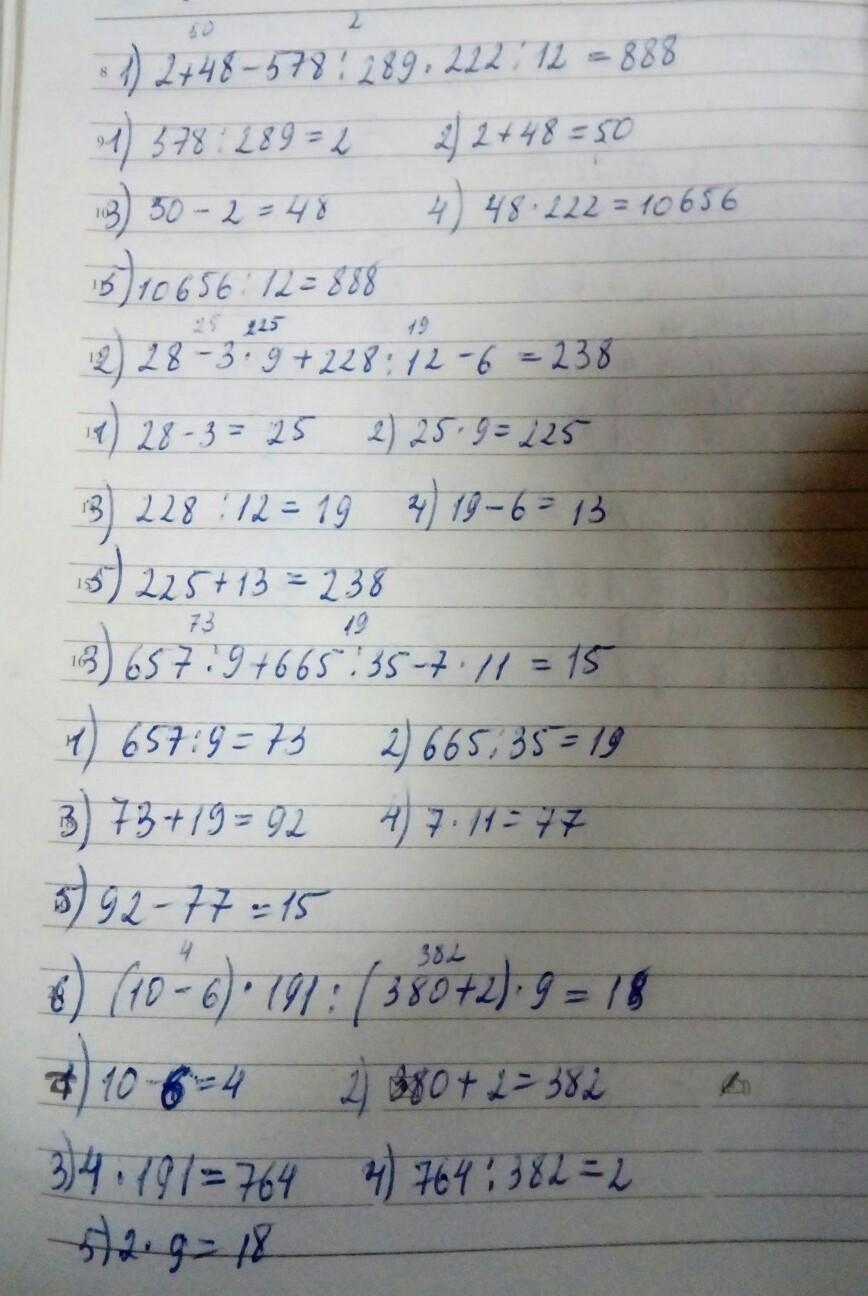 50 2
8 1) 2+48-578:289·222:12=888
9 1) 378:289=2 2) 2+48=50
10 3) 50-2=48 4) 48·222=10656
5) 10656:12=888
25 225 19
2) 28-3·9+228:12-6=238
1) 28-3=25 2) 25·9=225
3) 228:12=19 4) 19-6=13
15 5) 225+13=238
73 19
16 3) 657:9+665:35-7·11=15
1) 657:9=73 2) 665:35=19
3) 73+19=92 4) 7·11=77
5) 92-77=15
4 382
6) (10-6)·191:(380+2)·9=18
1) 10-6=4 2) 380+2=382
3) 4·191=764 4) 764:382=2
5) 2·9=18